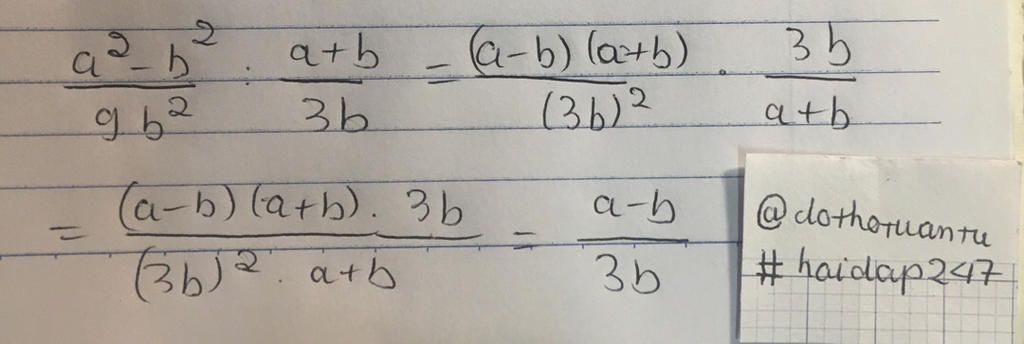 a² - b² / 9b² : a+b / 3b = (a-b)(a+b) / (3b)² . 3b / a+b
= (a-b)(a+b). 3b / (3b)² . a+b = a-b / 3b
@dothotuantu
# haidap247